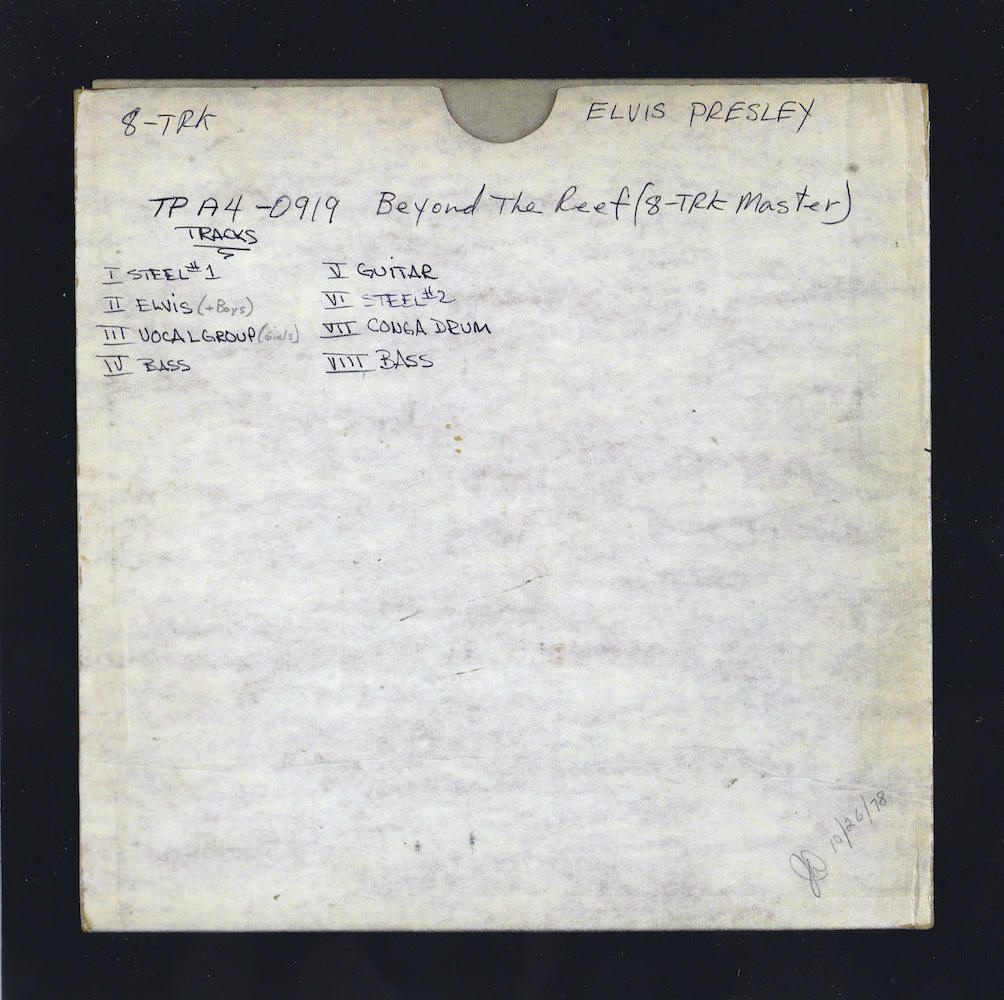 8-TRK
ELVIS PRESLEY
TPA4-0919 Beyond The Reef (8-TRK Master)
TRACKS
I STEEL #1
II ELVIS (+Boys)
III VOCAL GROUP (Girls)
IV BASS
V GUITAR
VI STEEL #2
VII CONGA DRUM
VIII BASS
10/26/78